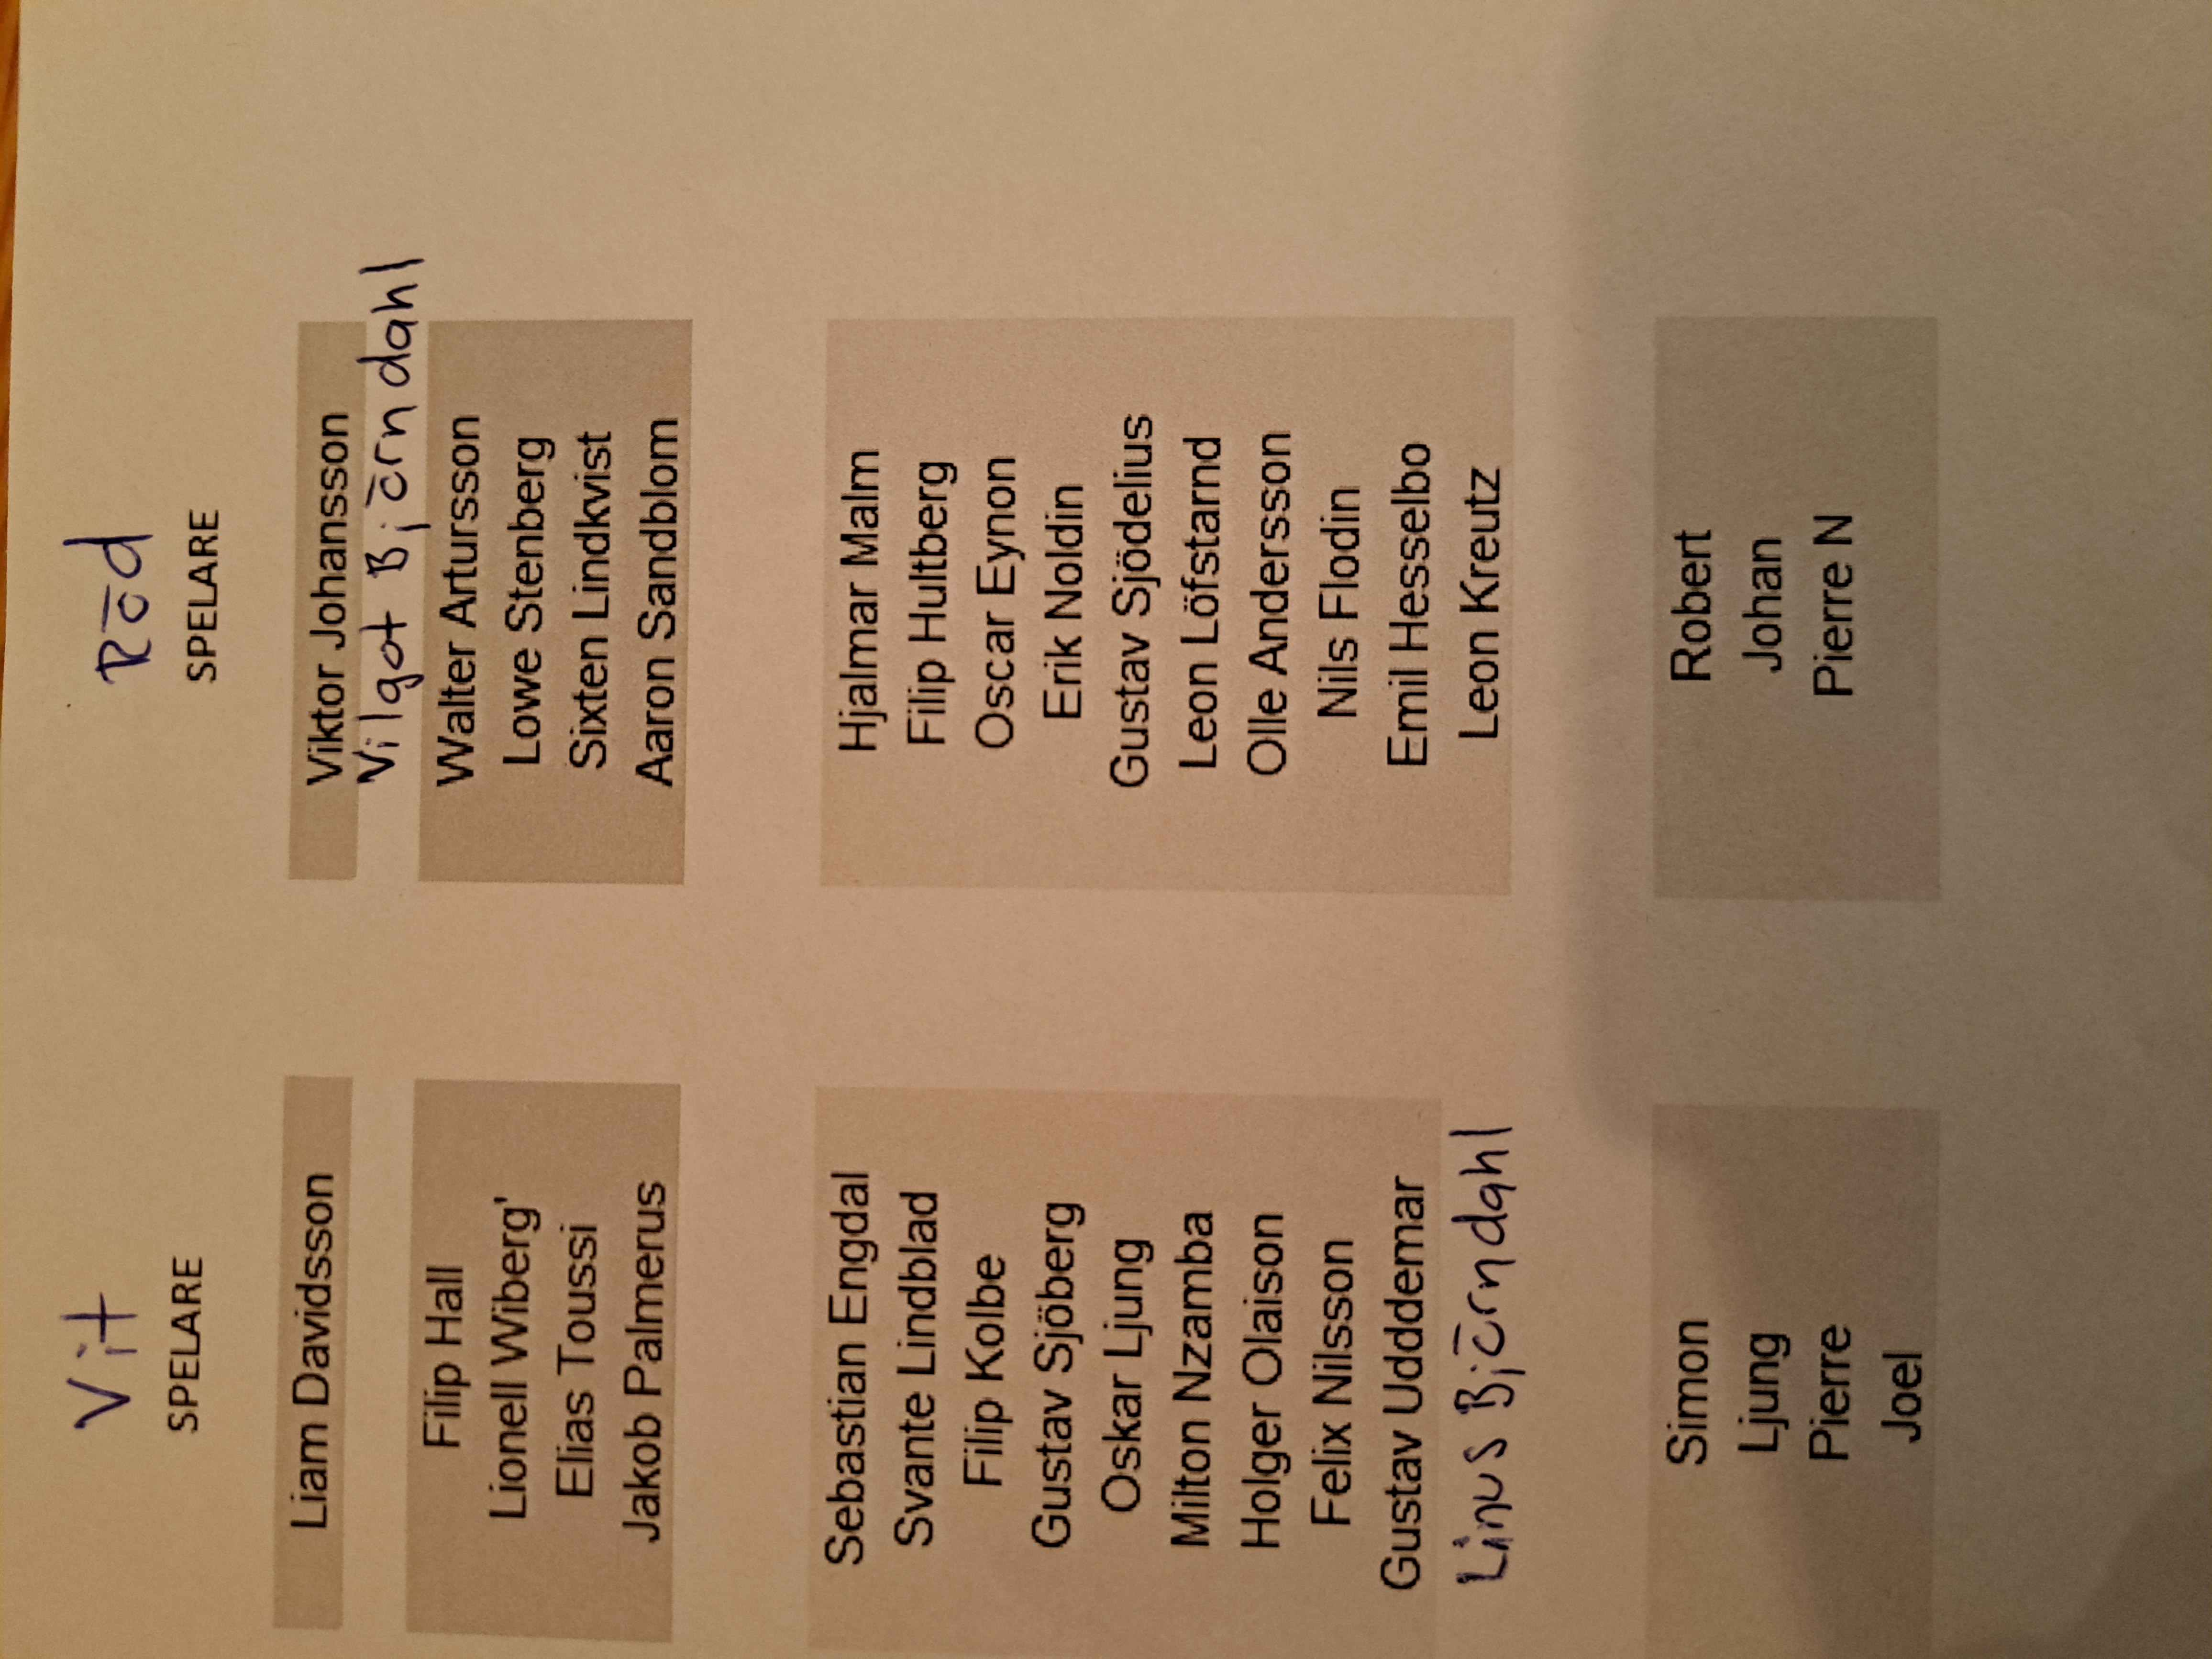 Vit
SPELARE
Liam Davidsson
Filip Hall
Lionell Wiberg'
Elias Toussi
Jakob Palmerus
Sebastian Engdal
Svante Lindblad
Filip Kolbe
Gustav Sjöberg
Oskar Ljung
Milton Nzamba
Holger Olaison
Felix Nilsson
Gustav Udddemar
Linus Björndahl
Simon
Ljung
Pierre
Joel
Röd
SPELARE
Viktor Johansson
Vilgot Björndahl
Walter Artursson
Lowe Stenberg
Sixten Lindkvist
Aaron Sandblom
Hjalmar Malm
Filip Hultberg
Oscar Eynon
Erik Noldin
Gustav Sjödelius
Leon Löfstarnd
Olle Andersson
Nils Flodin
Emil Hesselbo
Leon Kreutz
Robert
Johan
Pierre N